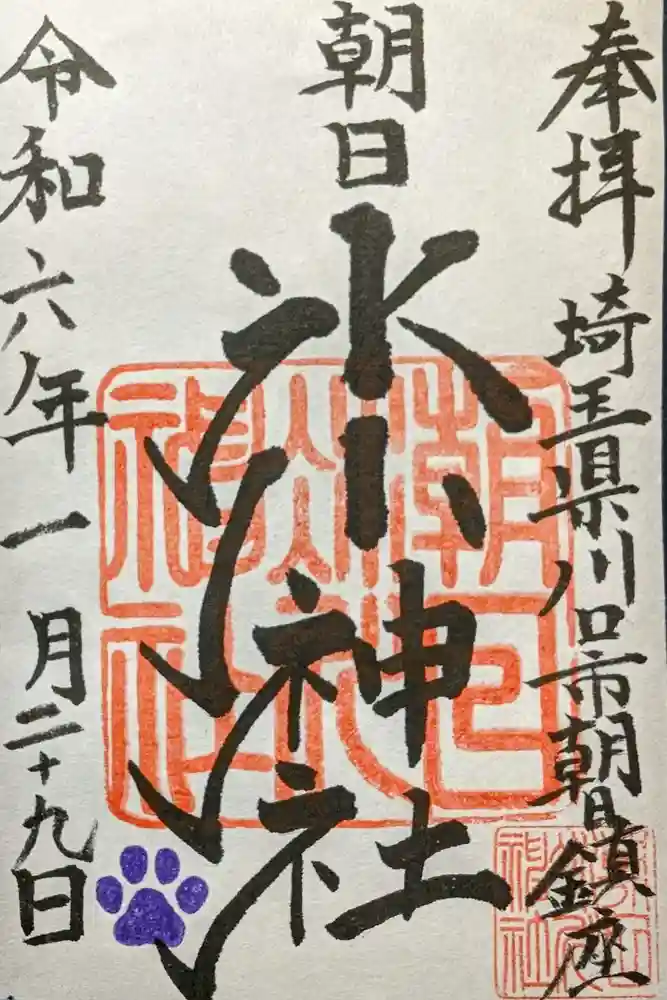 奉拝 埼玉県川口市朝日鎮座
朝日
氷川神社
令和六年一月二十九日
朝日
氷川
神社